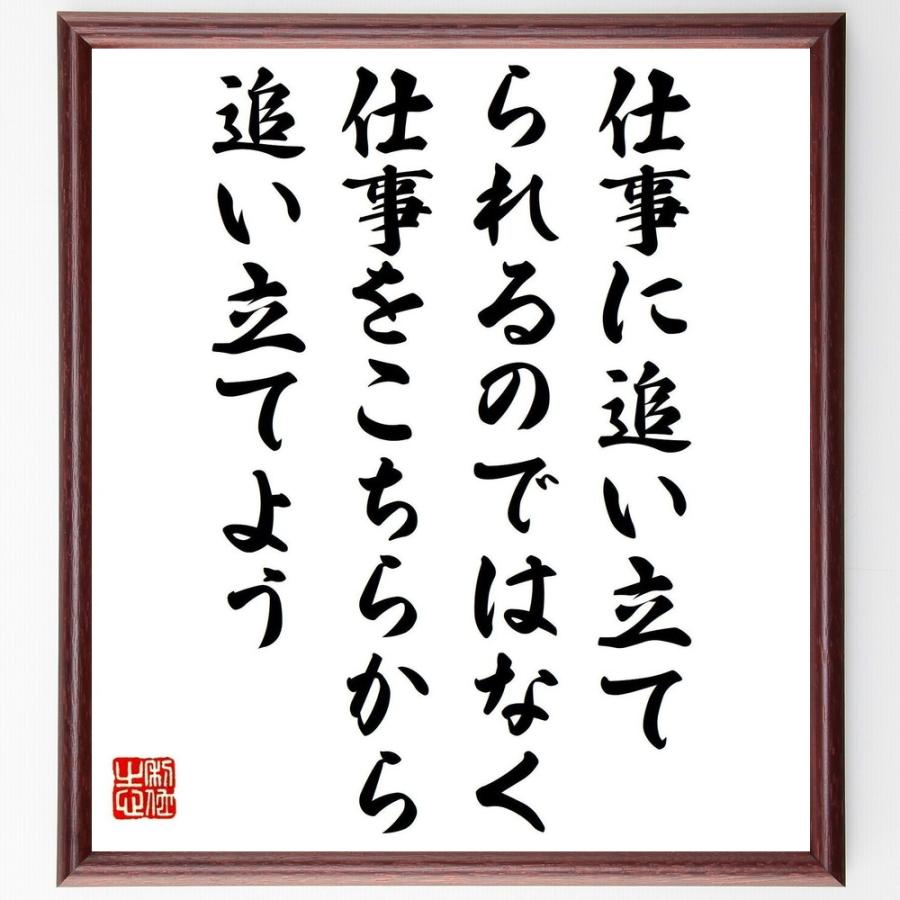 仕事に追い立て
られれるのではなく
仕事をこちらから
追い立てよう